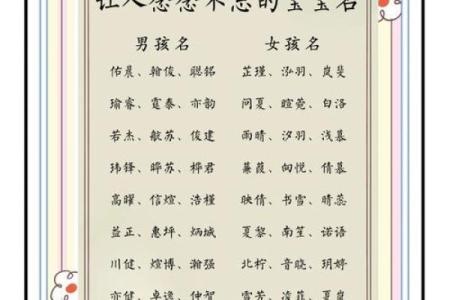 让人念念不忘的宝宝名
男孩名 女孩名
佑晨、翰俊、聪铭 芷瑾、泓羽、岚斐
瑜睿、霆泰、亦韵 问夏、暄菀、白洛
若杰、航苏、俊建 雨晴、汐羽、浅慕
玮锋、晔苏、桦君 蒹葭、向悦、倩慕
高曜、信煊、浩槿 映倩、书雪、晴蕊
益正、惠坪、炳城 夏黎、南笙、诺语
川健、煊博、瀚强 北柠、音晓、玥婷
亦健、卓逸、仲贺 雪芳、凌菲、夏岚